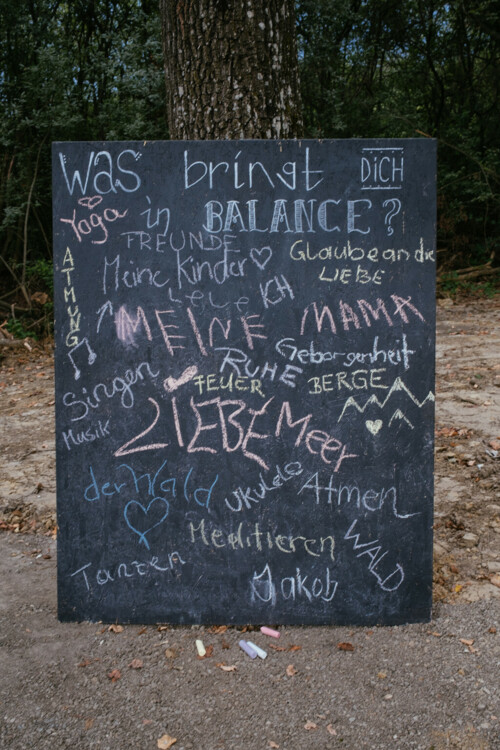 was bringt DiCH
in BALANCE?
Yoga
FREUNDE
Glaube an die
LiEBE
Meine Kinder
ATMUNG
ICH
MEiNE MAMA
RUHE
Geborgenheit
Singen
FEUER
BERGE
Musik
LIEBE
Meer
der Wald
Ukulele
Atmen
Meditieren
WALD
Tanzen
Jakob